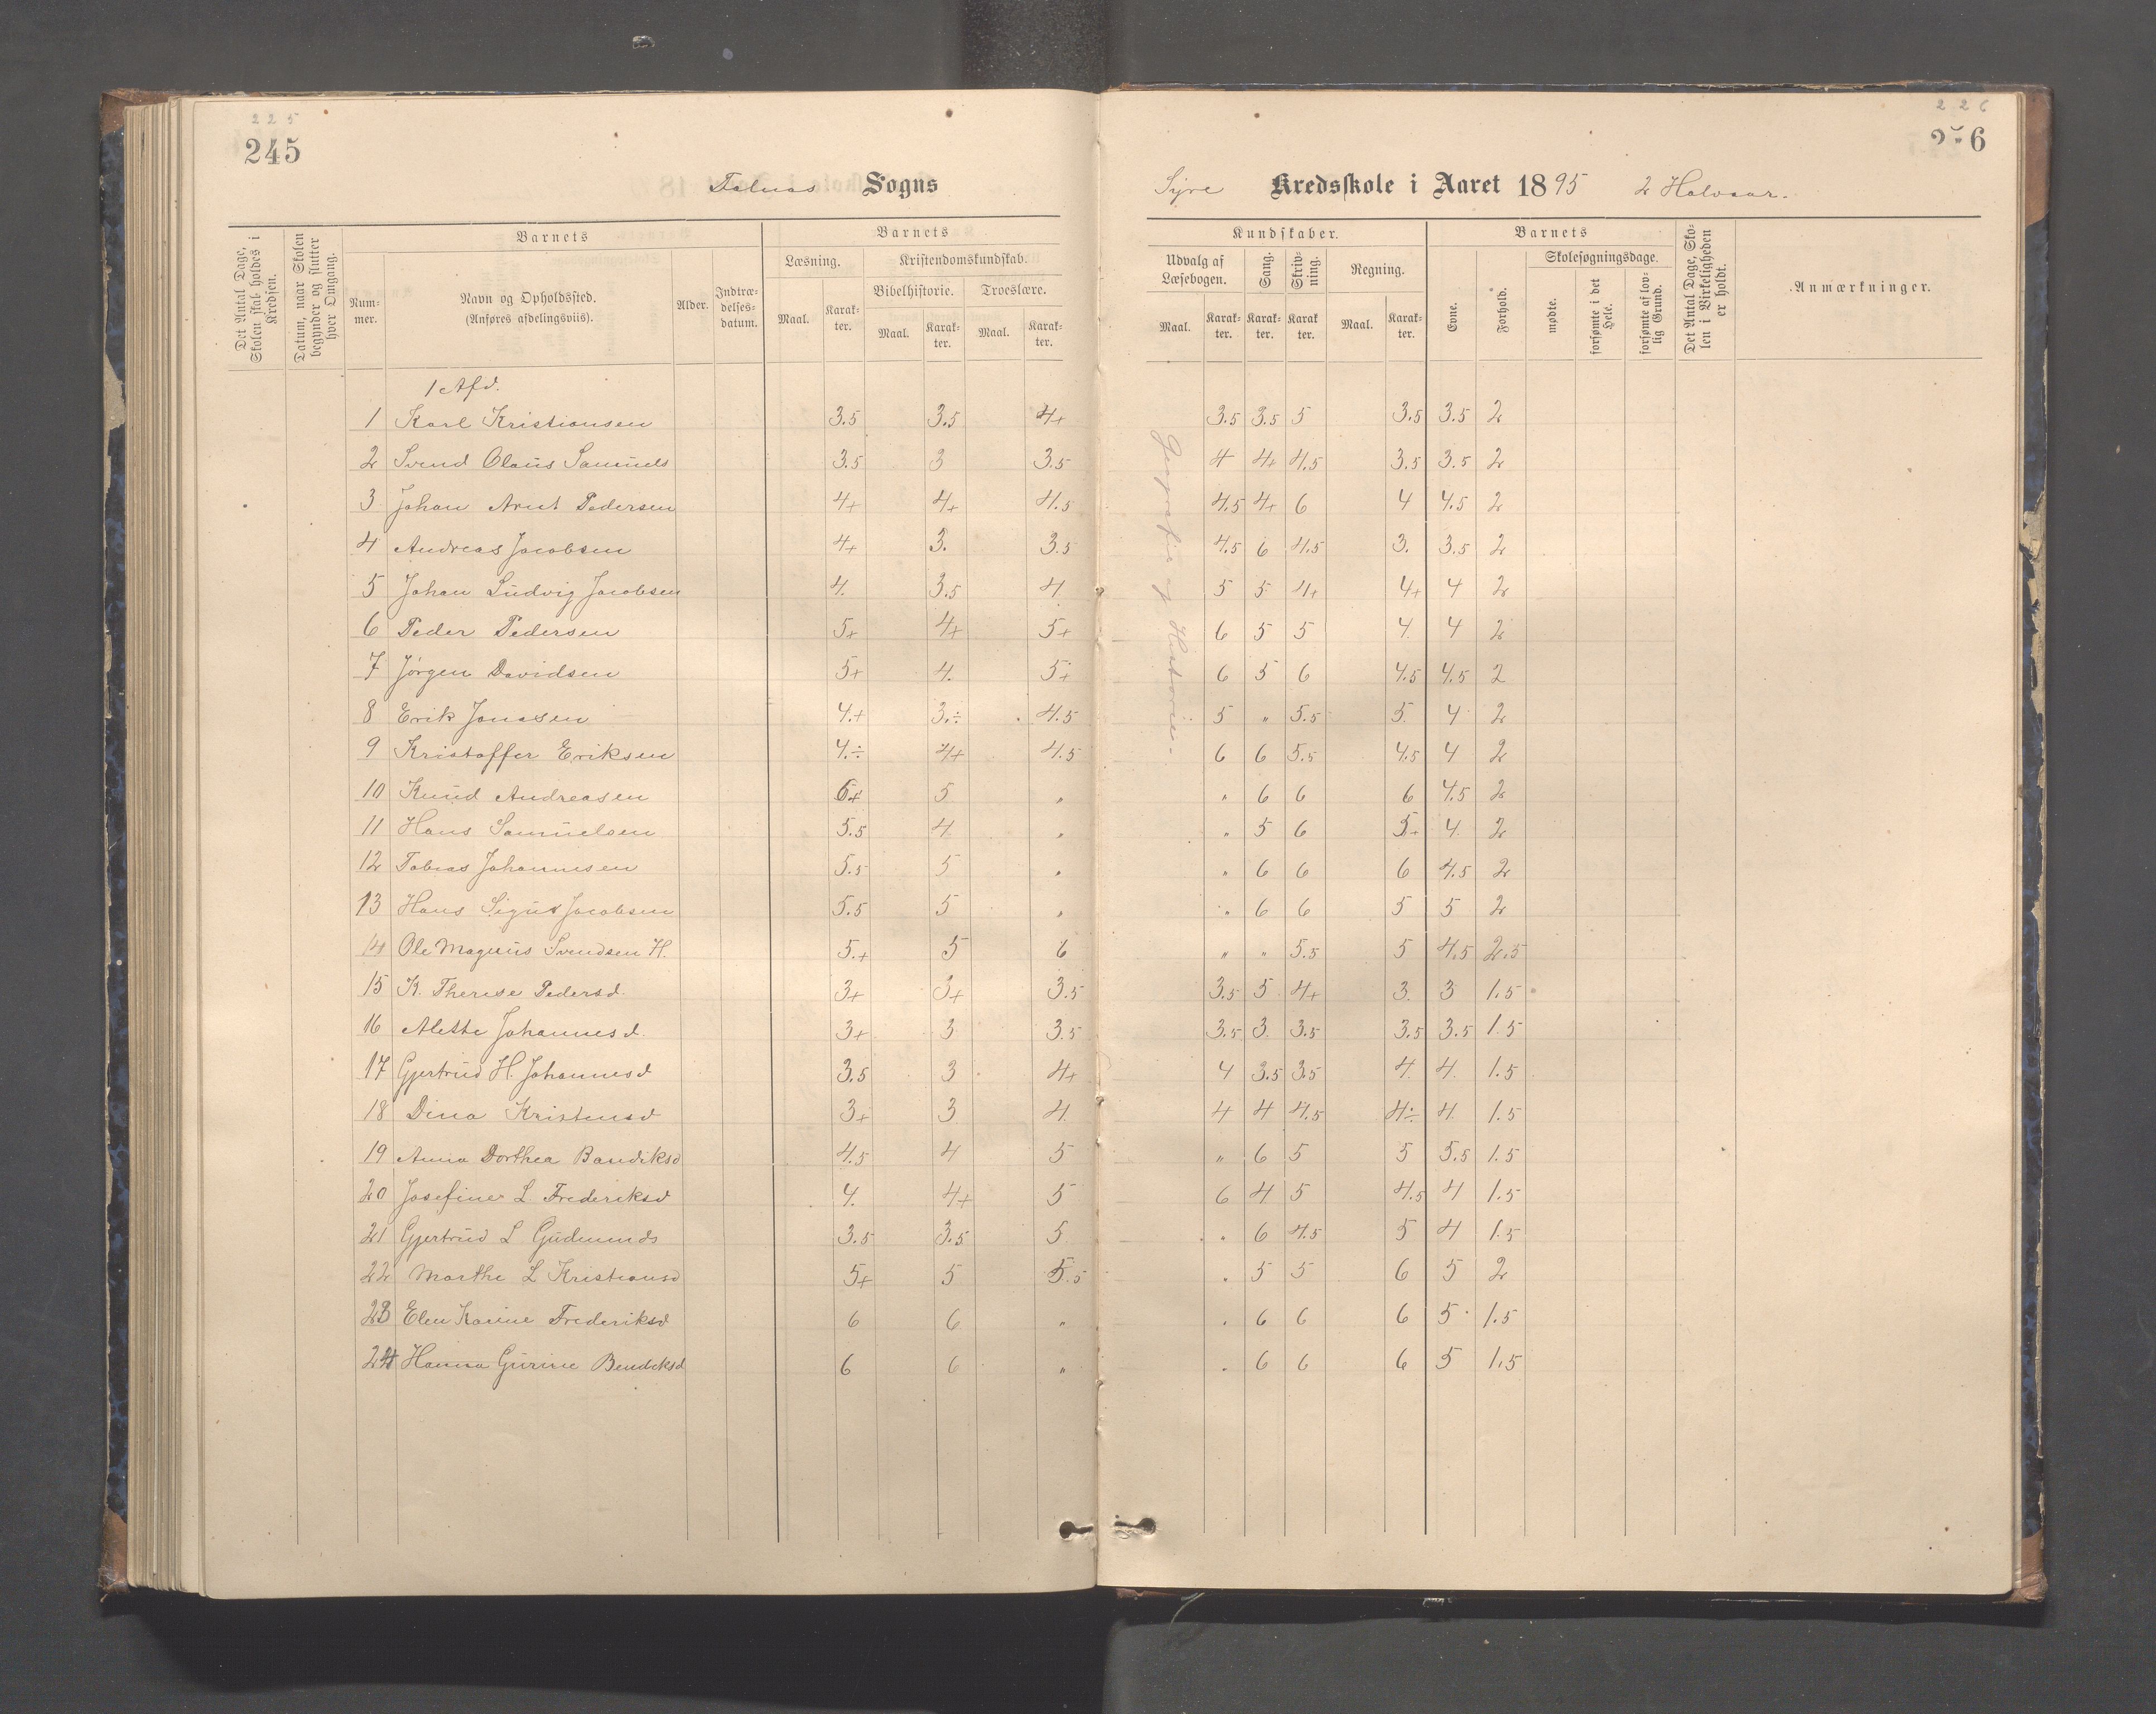 225
245
Sogns
Det Antal Dage, Skolen skal holdes i Kredsen.
Datum, naar Skolen begynder og slutter hver Omgang.
Barnets
Nummer.
Navn og Opholdssted.
(Anføres afdelingsviis).
Alder.
Indtrædelsesdatum.
Barnets
Læsning.
Kristendomskundskab.
Bibelhistorie.
Troeslære.
Maal.
Karakter.
Maal.
Karakter.
Maal.
Karakter.
1 Afd.
1 Karl Kristiansen 3.5 3.5 4+
2 Svend Olaus Samuels 3.5 3 3.5
3 Johan Arnt Pedersen 4+ 4+ 4.5
4 Andreas Jacobsen 4+ 3. 3.5
5 Johan Ludvig Jacobsen 4. 3.5 4
6 Peder Pedersen 5+ 4+ 5+
7 Jörgen Davidsen 5+ 4. 5+
8 Erik Jonasen 4.+ 3.÷ 4.5
9 Kristoffer Eriksen 4.÷ 4+ 4.5
10 Knud Andreasen 6+ 5 „
11 Hans Samuelsen 5.5 4. „
12 Tobias Johannesen 5.5 5 „
13 Hans Jacobsen 5.5 5 „
14 Ole Magnus Svendsen H. 5.+ 5 6
15 K. Therese Pedersd. 3+ 3+ 3.5
16 Alette Johannesd. 3+ 3 3.5
17 Gjertrud H. Johannesd 3.5 3 4+
18 Dina Kristensd 3+ 3 4
19 Anna Dorthea Bendiksd 4.5 4 5
20 Josefine L Frederiksd 4. 4+ 5
21 Gjertrud L Gudmunds 3.5 3.5 5
22 Marthe L Kristiansd 5+ 5 5.5
23 Elen Karine Frederiksd 6 6 „
24 Hanna Gurine Bendiksd 6 6 „
226
Syre Kredsskole i Aaret 1895 2 Halvaar.
Kundskaber.
Udvalg af Læsebogen.
Maal.
Karakter.
Sang.
Karakter.
Skrivning.
Karakter.
Regning.
Maal.
Karakter.
Barnets
Evne.
Forhold.
Skolesøgningsdage.
mødte.
forsømte i det Hele.
forsømte af lovlig Grund.
Det Antal Dage, Skolen i Virkeligheden er holdt.
Anmærkninger.
Geografi og Historie.
3.5 3.5 5 3.5 3.5 2
4 4+ 4.5 3.5 3.5 2
4.5 4+ 6 4 4.5 2
4.5 6 4.5 3. 3.5 2
5 5 4+ 4+ 4 2
6 5 5 4. 4 2
6 5 6 4.5 4.5 2
5 „ 5.5 5. 4 2
6 6 5.5 4.5 4 2
„ 6 6 6 4.5 2
„ 5 6 5+ 4. 2
„ 6 6 6 4.5 2
„ 6 6 5 5 2
„ „ 5.5 5 4.5 2.5
3.5 5 4+ 3. 3 1.5
3.5 3. 3.5 3.5 3.5 1.5
4 3.5 3.5 4. 4. 1.5
4 4 4.5 4÷ 4. 1.5
„ 6 5 5 5.5 1.5
6 4 5 4.5 4 1.5
„ 6 4.5 5 4 1.5
„ 5 5 6 5 2
„ 6 6 6 5 1.5
„ 6 6 6 5 1.5